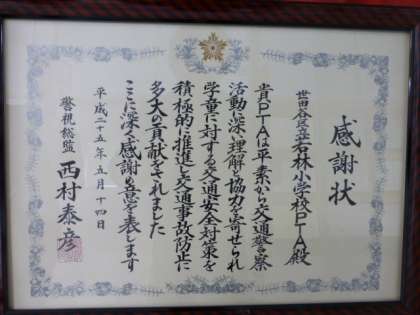 感謝状
世田谷区立若林小学校PTA殿
貴PTAは平素から交通警察
活動に深い理解と協力を寄せられ
学童に対する交通安全対策を
積極的に推進し交通事故防止に
多大の貢献をされました
ここに深く感謝の意を表します
平成二十五年五月十四日
警視総監 西村泰彦